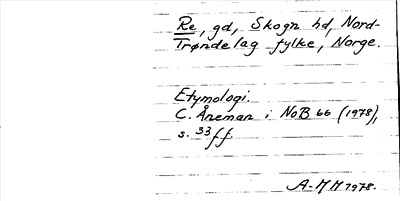 Re, gd, Skogn hd, Nord-
Trøndelag fylke, Norge.
Etymologi.
C. Åneman i NoB 66 (1978),
s. 33 ff.
A-M M 1978.